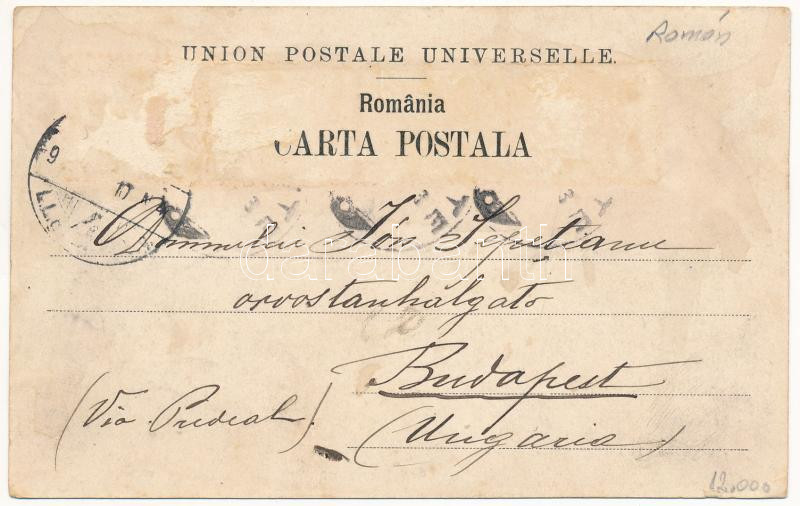 Román
UNION POSTALE UNIVERSELLE.
România
CARTA POSTALA
Domnului Ion
orvostanhalgato
Budapest
(Via Predeal)
(Ungaria)
darabanth
12.000